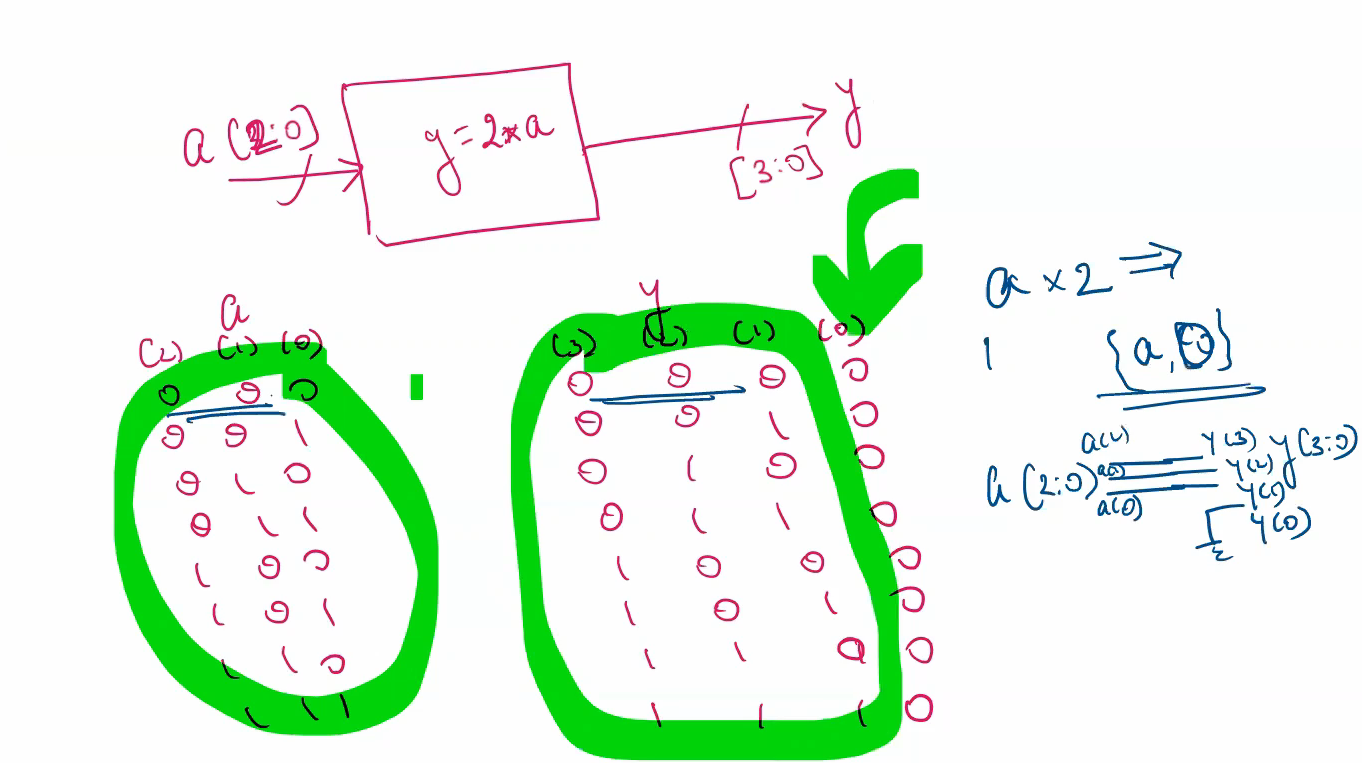 a [2:0]
y = 2*a
y
[3:0]
a
(2) (1) (0)
0 0 0
0 0 1
0 1 0
0 1 1
1 0 0
1 0 1
1 1 0
1 1 1
y
(3) (2) (1) (0)
0 0 0 0
0 0 1 0
0 1 0 0
0 1 1 0
1 0 0 0
1 0 1 0
1 1 0 0
1 1 1 0
a × 2 ⇒
{a, 0}
a(2) y(3)
a(2:0) a(1) y(2) y(3:0)
a(0) y(1)
y(0)